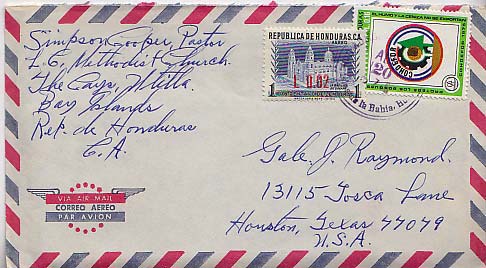 Simpson Cooper, Pastor
I.C. Methodist Church.
The Cays, Utilla.
Bay Islands
Rep. de Honduras
C.A.
REPUBLICA DE HONDURAS. C.A.
AEREO
L 0.02
1 1
EL HUMO Y LA CENIZA NO SE EXPORTAN
COHDEFOR
20
la Bahia, H
Gale J. Raymond.
13115 Tosca Lane
Houston, Texas 77079
U.S.A.
VIA AIR MAIL
CORREO AEREO
PAR AVION